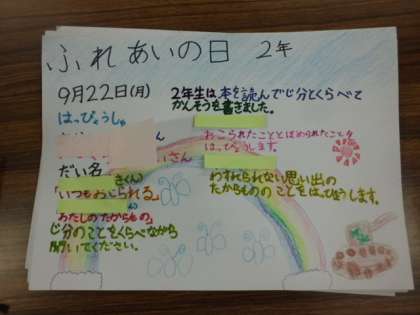 ふれあいの日 2年
9月22日(月)
2年生は本を読んでじ分とくらべて
かんそうを書きました。
はっぴょうしゃ
ん
おこられたこととほめられたことを
はっぴょうします。
さん
だい名
さくん
「いつもおこられる」
わすれられない思い出の
たからもののことをはっぴょうします。
「わたしのたからもの」
じ分のことをくらべながら
聞いてください。